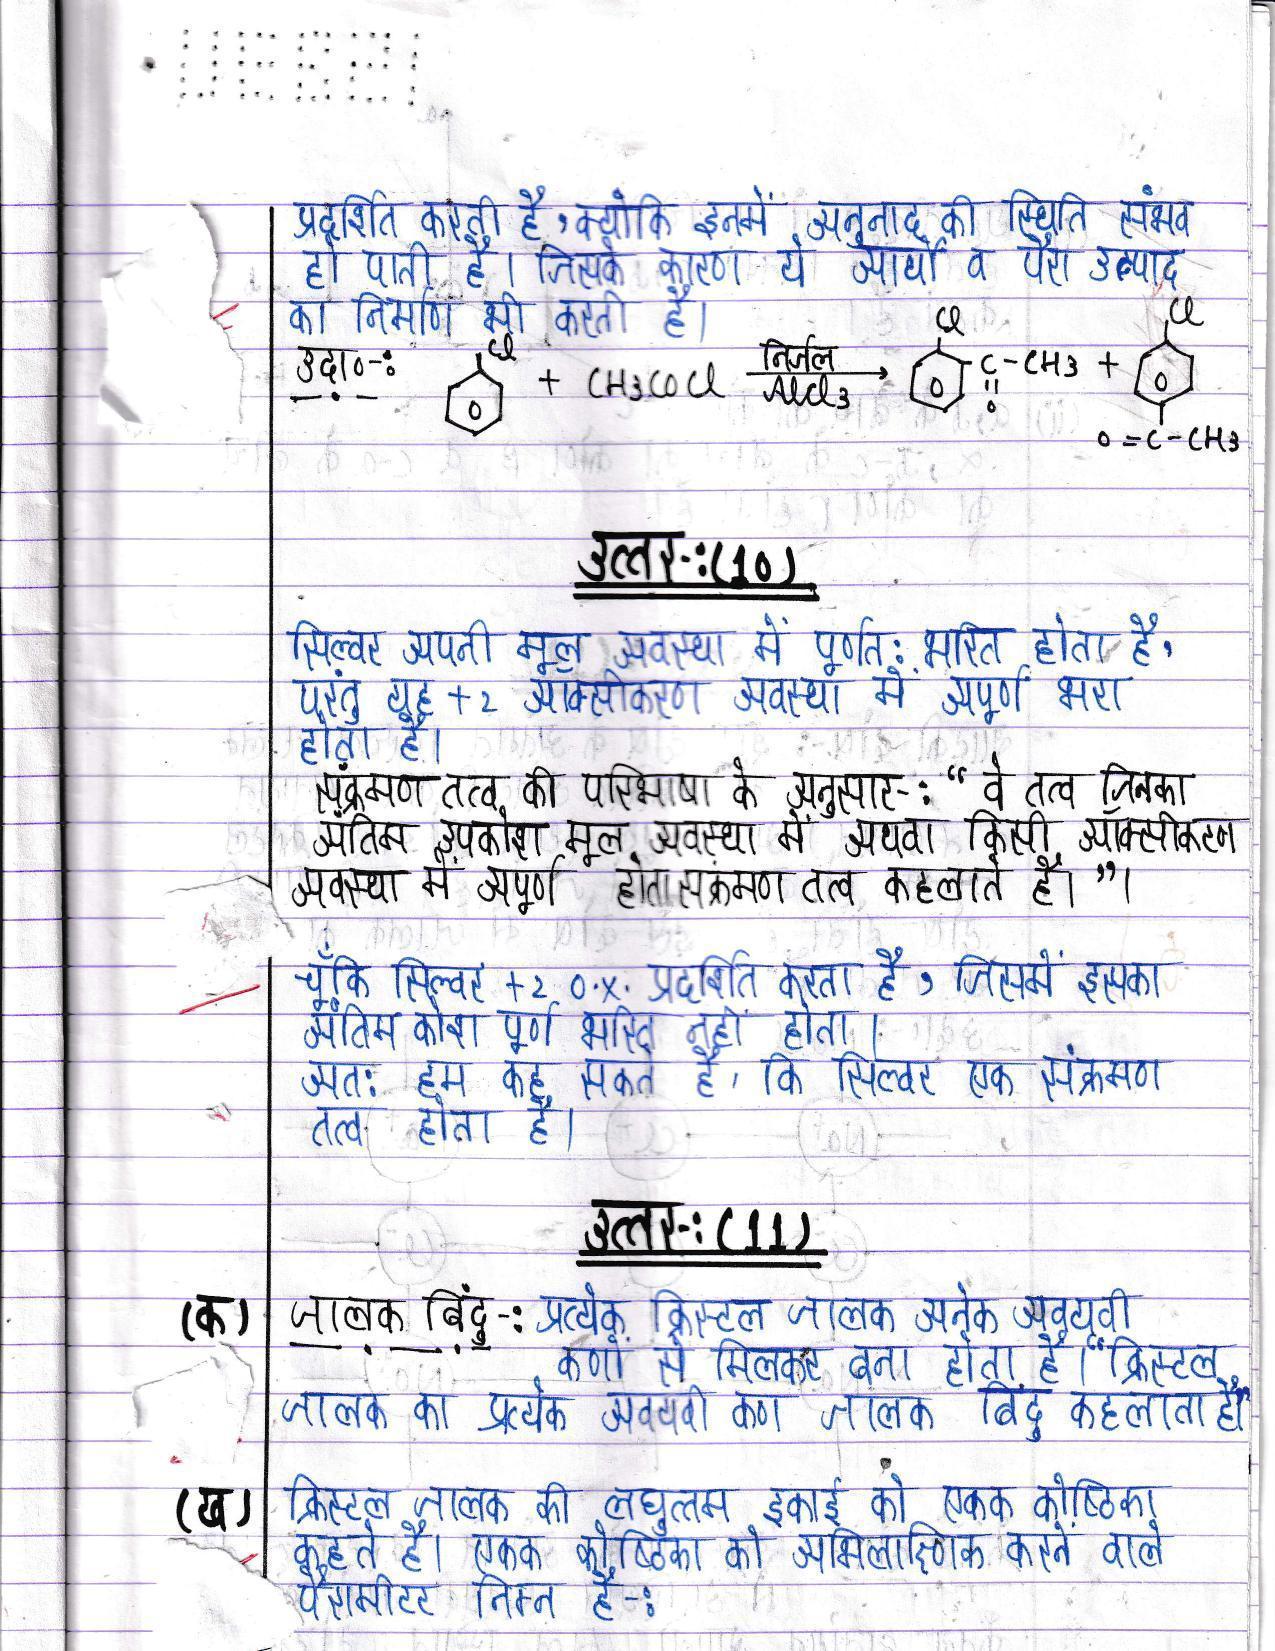 प्रदर्शित करती है, क्योकि इनमें अनुनाद की स्थिति संभव
हो पाती है। जिसके कारण ये आर्थो व पैरा उत्पाद
का निर्माण भी करती है।
उदा०-:
Cl
+ CH3COCl
निर्जल
AlCl3
Cl
C-CH3 +
O
Cl
O=C-CH3
उत्तर-:(10)
सिल्वर अपनी मूल अवस्था में पूर्णत: भरित होता है,
परंतु यह +2 ऑक्सीकरण अवस्था में अपूर्ण भरा
होता है।
संक्रमण तत्व की परिभाषा के अनुसार-: “ वे तत्व जिनका
अंतिम उपकोश मूल अवस्था में अथवा किसी ऑक्सीकरण
अवस्था में अपूर्ण होता संक्रमण तत्व कहलाते है। ”।
चूँकि सिल्वर +2 O.X. प्रदर्शित करता है, जिसमें इसका
अंतिम कोश पूर्ण भरित नहीं होता।
अत: हम कह सकते है, कि सिल्वर एक संक्रमण
तत्व होता है।
उत्तर-:(11)
(क) जालक बिंदु-: प्रत्येक क्रिस्टल जालक अनेक अवयवी
कणों से मिलकर बना होता है। “क्रिस्टल
जालक का प्रत्येक अवयवी कण जालक बिंदु कहलाता है।”
(ख) क्रिस्टल जालक की लघुतम इकाई को एकक कोष्ठिका
कहते है। एकक कोष्ठिका को अभिलाक्षणिक करने वाले
पैरामीटर निम्न है-: